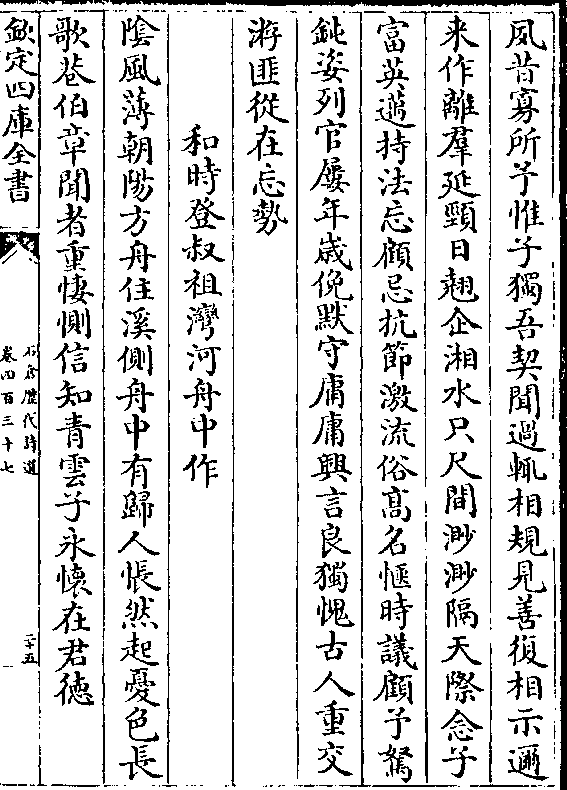 夙昔寡所予惟子獨吾契聞過輒相規見善復相示邇
来作離羣延頸日翹企湘水只尺間渺渺隔天際念子
富英邁持法忘顧忌抗節激流俗高名愜時議顧予駑
鈍姿列官屢年歲俛默守庸庸興言良獨愧古人重交
游匪從在忘勢
和時登叔祖灣河舟中作
陰風薄朝陽方舟住溪側舟中有歸人悵然起憂色長
歌巷伯章聞者重悽惻信知青雲子永懷在君德
欽定四庫全書
石倉歷代詩選
卷四百三十七
二十五